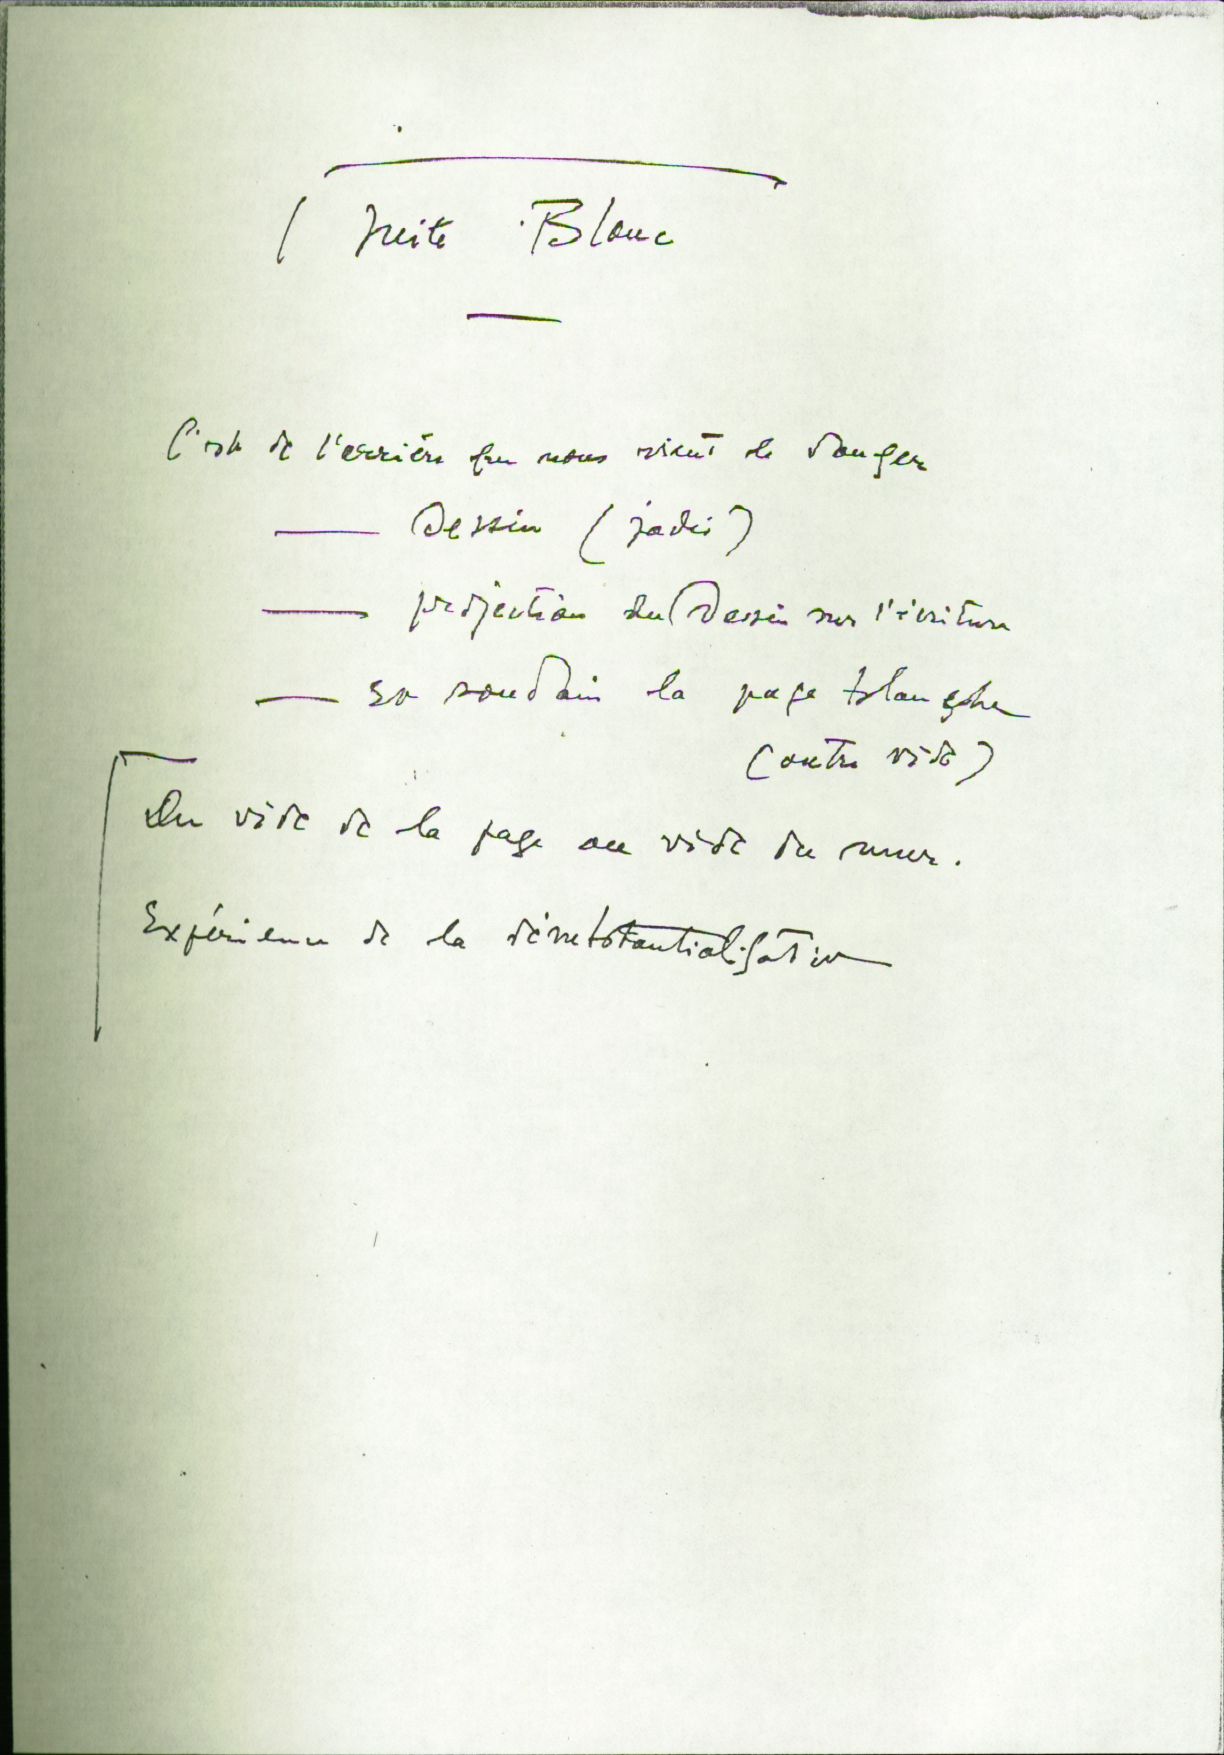 ( Suite Blanc
C'est de l'arrière que nous vient le danger
— Dessin (jadis)
— projection du Dessin sur l'écriture
— et soudain la page blanche
(autre vide)
Du vide de la page au vide du mur.
Expérience de la désubstantialisation